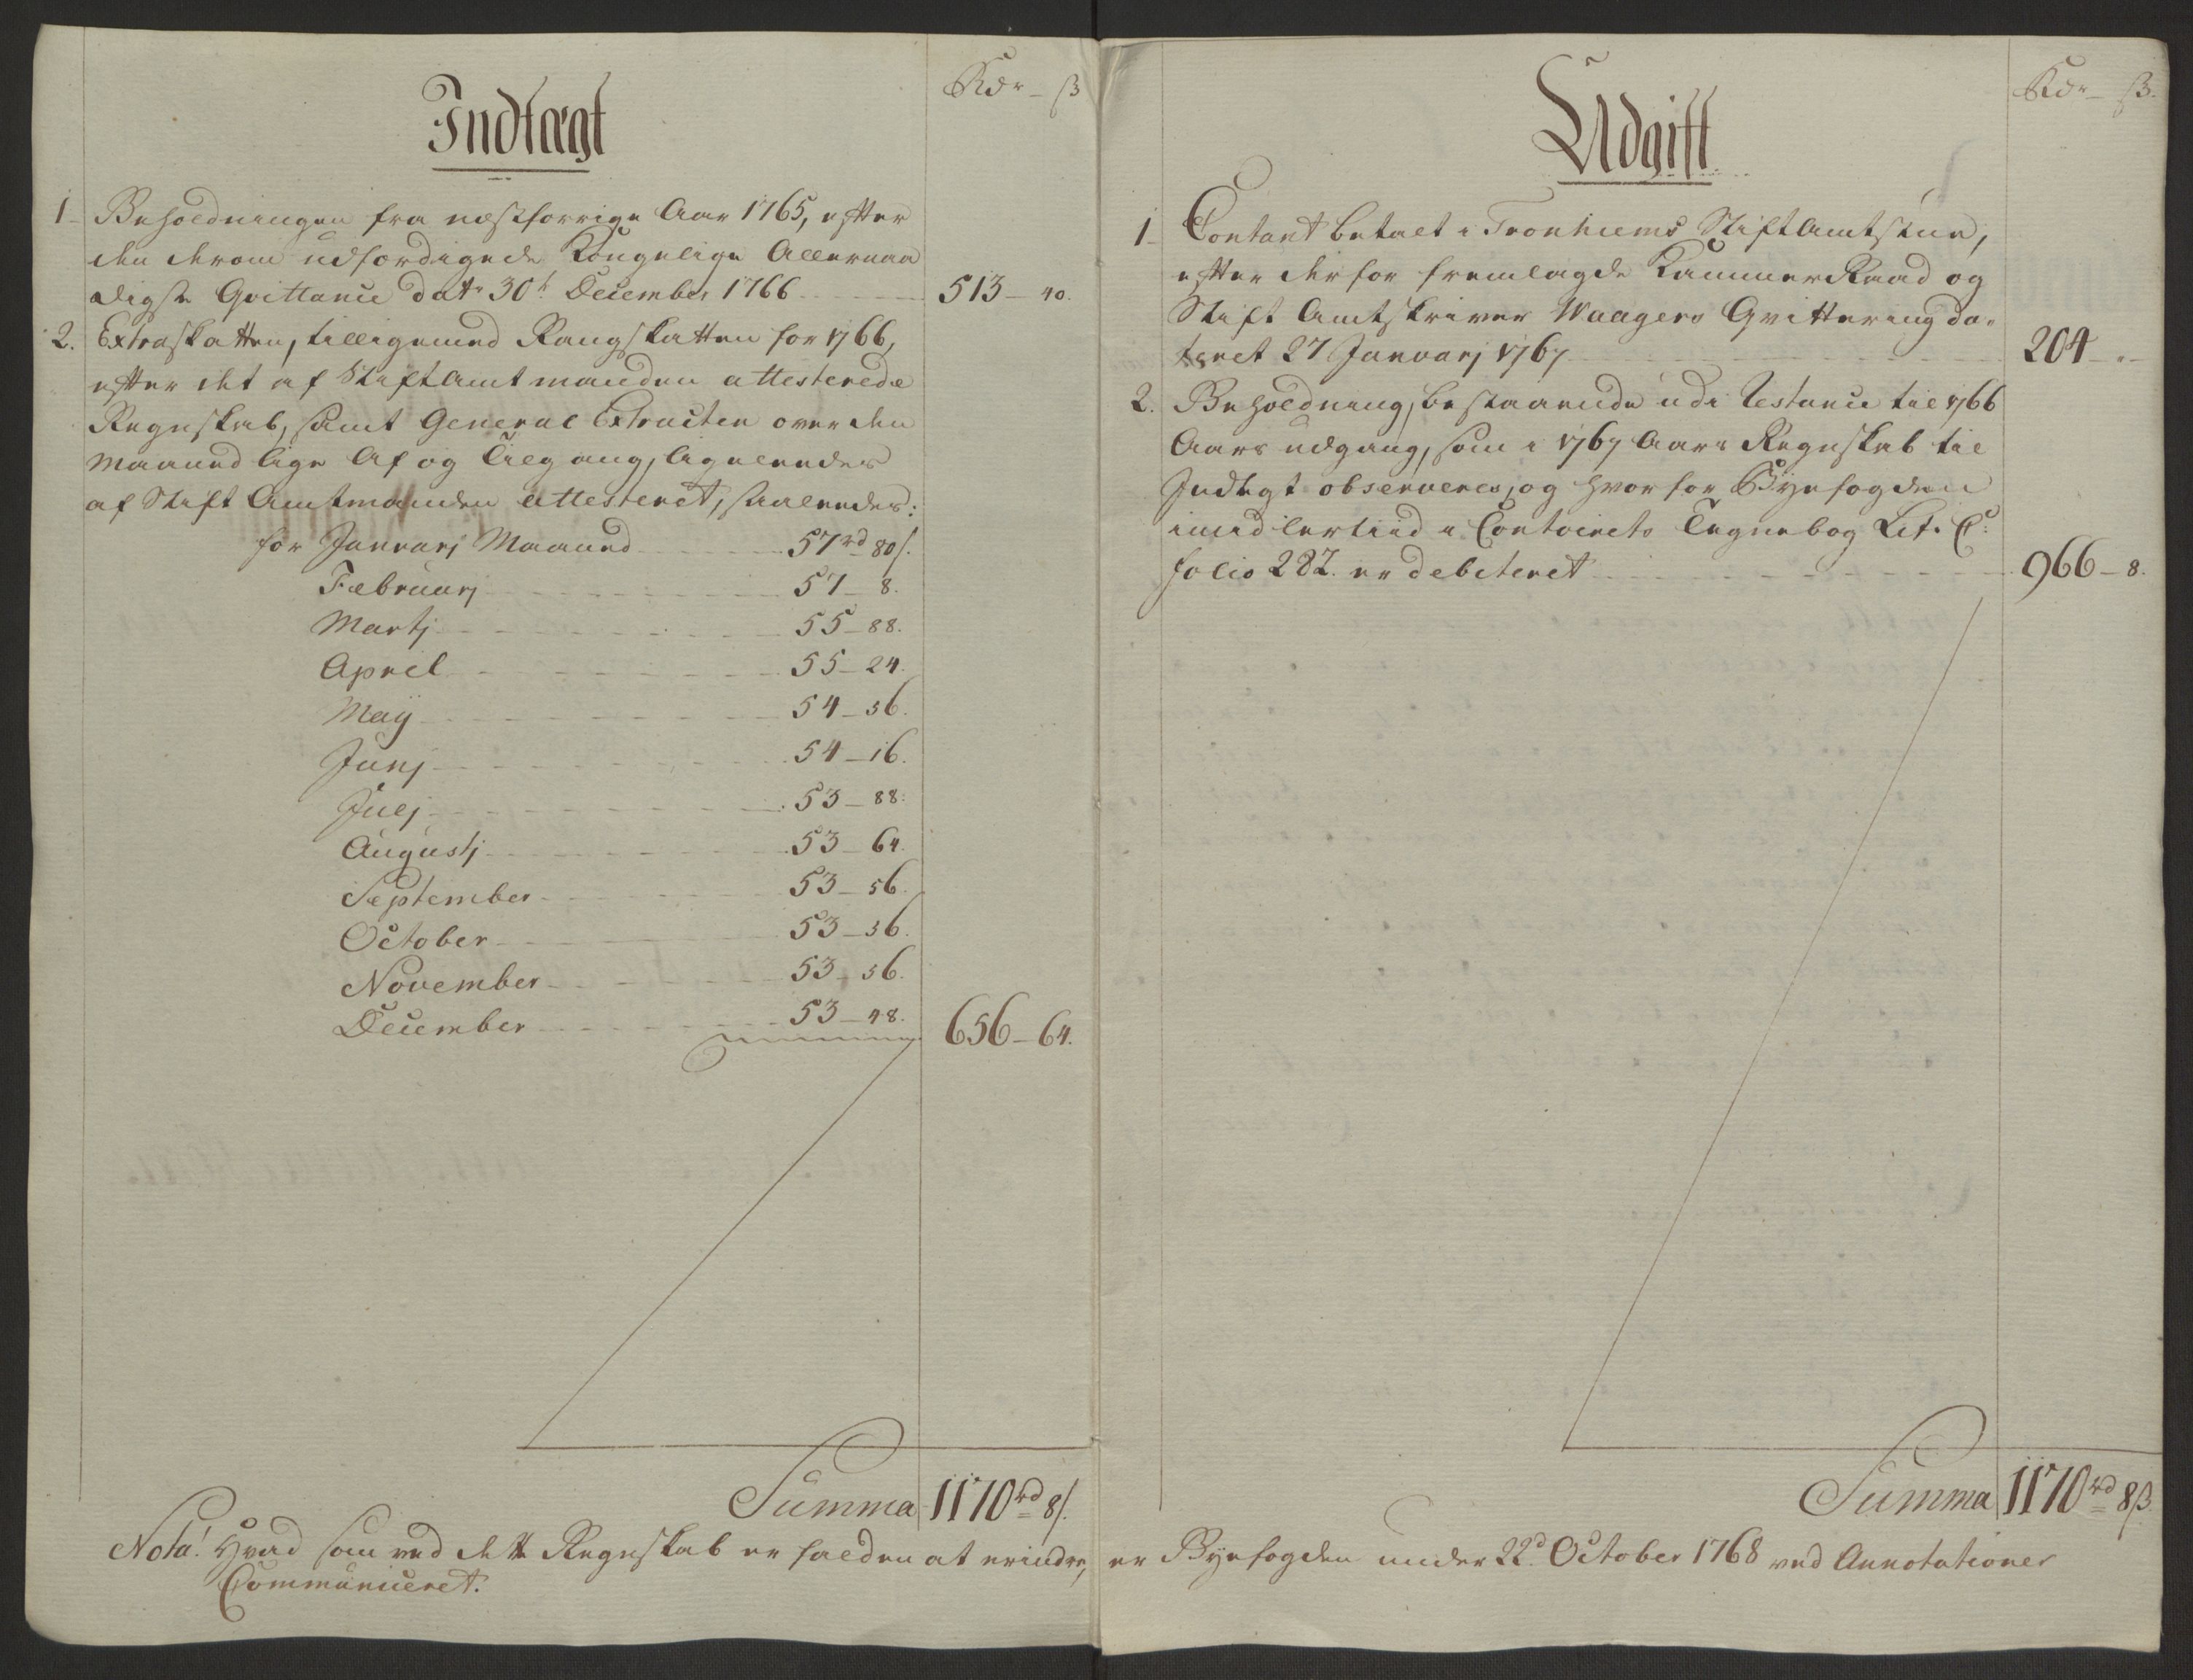 Indtægt
Rdr - ß
1- Beholdningen fra næstforrige Aar 1765, efter
den derom udfærdigede Kongelige Allernaa
digste Qvittance dat. 30t December 1766 513 - 40.
2. Extraskatten, tilligemed Rangskatten for 1766,
efter det af Stiftamtmanden attesterede
Regnskab, samt General Extracten over den
Maanedlige Af og Tilgang, ligeleedes
af Stift Amtmanden attesteret, saaleedes:
for Januarj Maaned 57rd 80ß.
Februarj 57 - 8.
Martj 55 - 88.
April 55 - 24.
Maij 54 - 56.
Junj 54 - 16.
Julj 53 - 88.
Augustj 53 - 64.
September 53 - 56.
October 53 - 56.
November 53 - 56.
December 53 - 48. 656 - 64.
Summa 1170rd 8ß.
Nota! Hvad som ved dette Regnskab er falden at erindre,
Communiceret.
Udgift
Rdr - ß.
1- Contant betalt i Tronhiems StiftAmtstue,
efter derfor fremlagde Kammer Raad og
Stift Amtskriver Waagers Qvittering da-
teret 27 Januarj 1767 204 - " -
2. Beholdning, bestaaende udi Restance til 1766
Aars udgang, som i 1767 Aars Regnskab til
Indtegt observeres, og hvorfor Byefogden
imidlertiid i Contoirets Tegnebog Lit. C:
folio 282. er debiteret 966 - 8.
Summa 1170rd 8ß.
er Byefogden under 22d October 1768 ved Annotationer